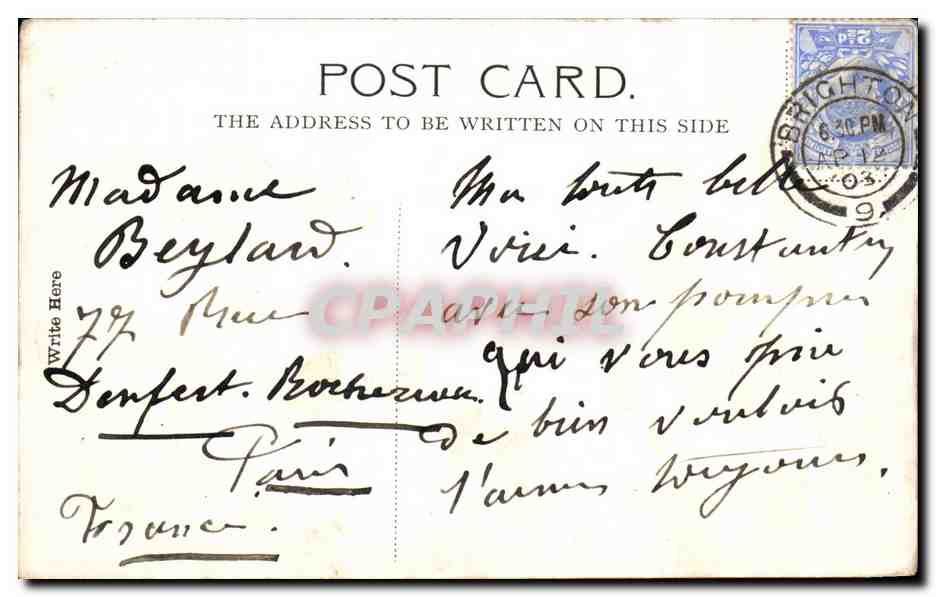 POST CARD.
THE ADDRESS TO BE WRITTEN ON THIS SIDE
2½d
BRIGHTON
6.30 PM
AP 12
03
9
Write Here
Madame
Beylard.
77 Rue
Denfert. Rochereau.
Paris
France.
Ma toute belle
Voici. Constantin
avec son pompon
qui vous prie
de bien vouloir
l'aimer toujours.
CPAPHIL